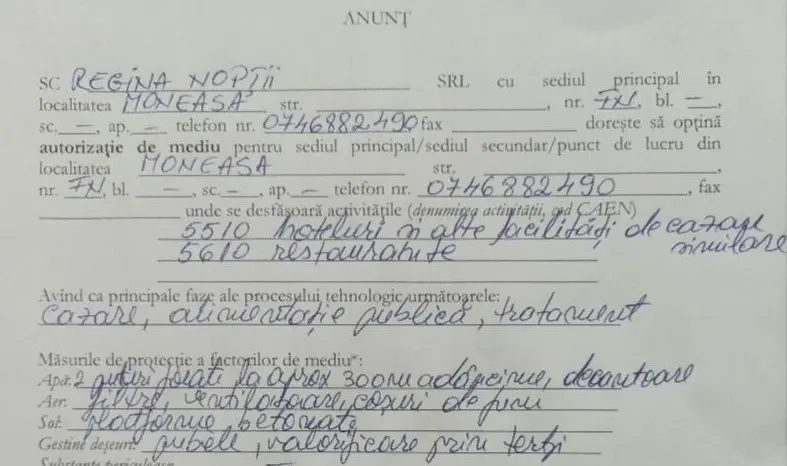 ANUNȚ
SC REGINA NOPȚII SRL cu sediul principal în
localitatea MONEASA str. , nr. FN, bl. –,
sc. –, ap. – telefon nr. 0746882490 fax dorește să obțină
autorizație de mediu pentru sediul principal/sediul secundar/punct de lucru din
localitatea MONEASA str. ,
nr. FN, bl. – , sc. – , ap. – telefon nr. 0746882490 , fax
unde se desfășoară activitățile (denumirea activității, cod CAEN)
5510 hoteluri si alte facilități de cazare
similare
5610 restaurante
Avind ca principale faze ale procesului tehnologic următoarele:
Cazare, alimentație publică, tratament
Măsurile de protecție a factorilor de mediu*:
Apă: 2 puțuri forati la aprox 300m adâncime, decantoare
Aer: filtre, ventilatoare, coșuri de fum
Sol: platforme betonate
Gestine deșeuri: pubele, valorificare prin terți
Substanțe periculoase